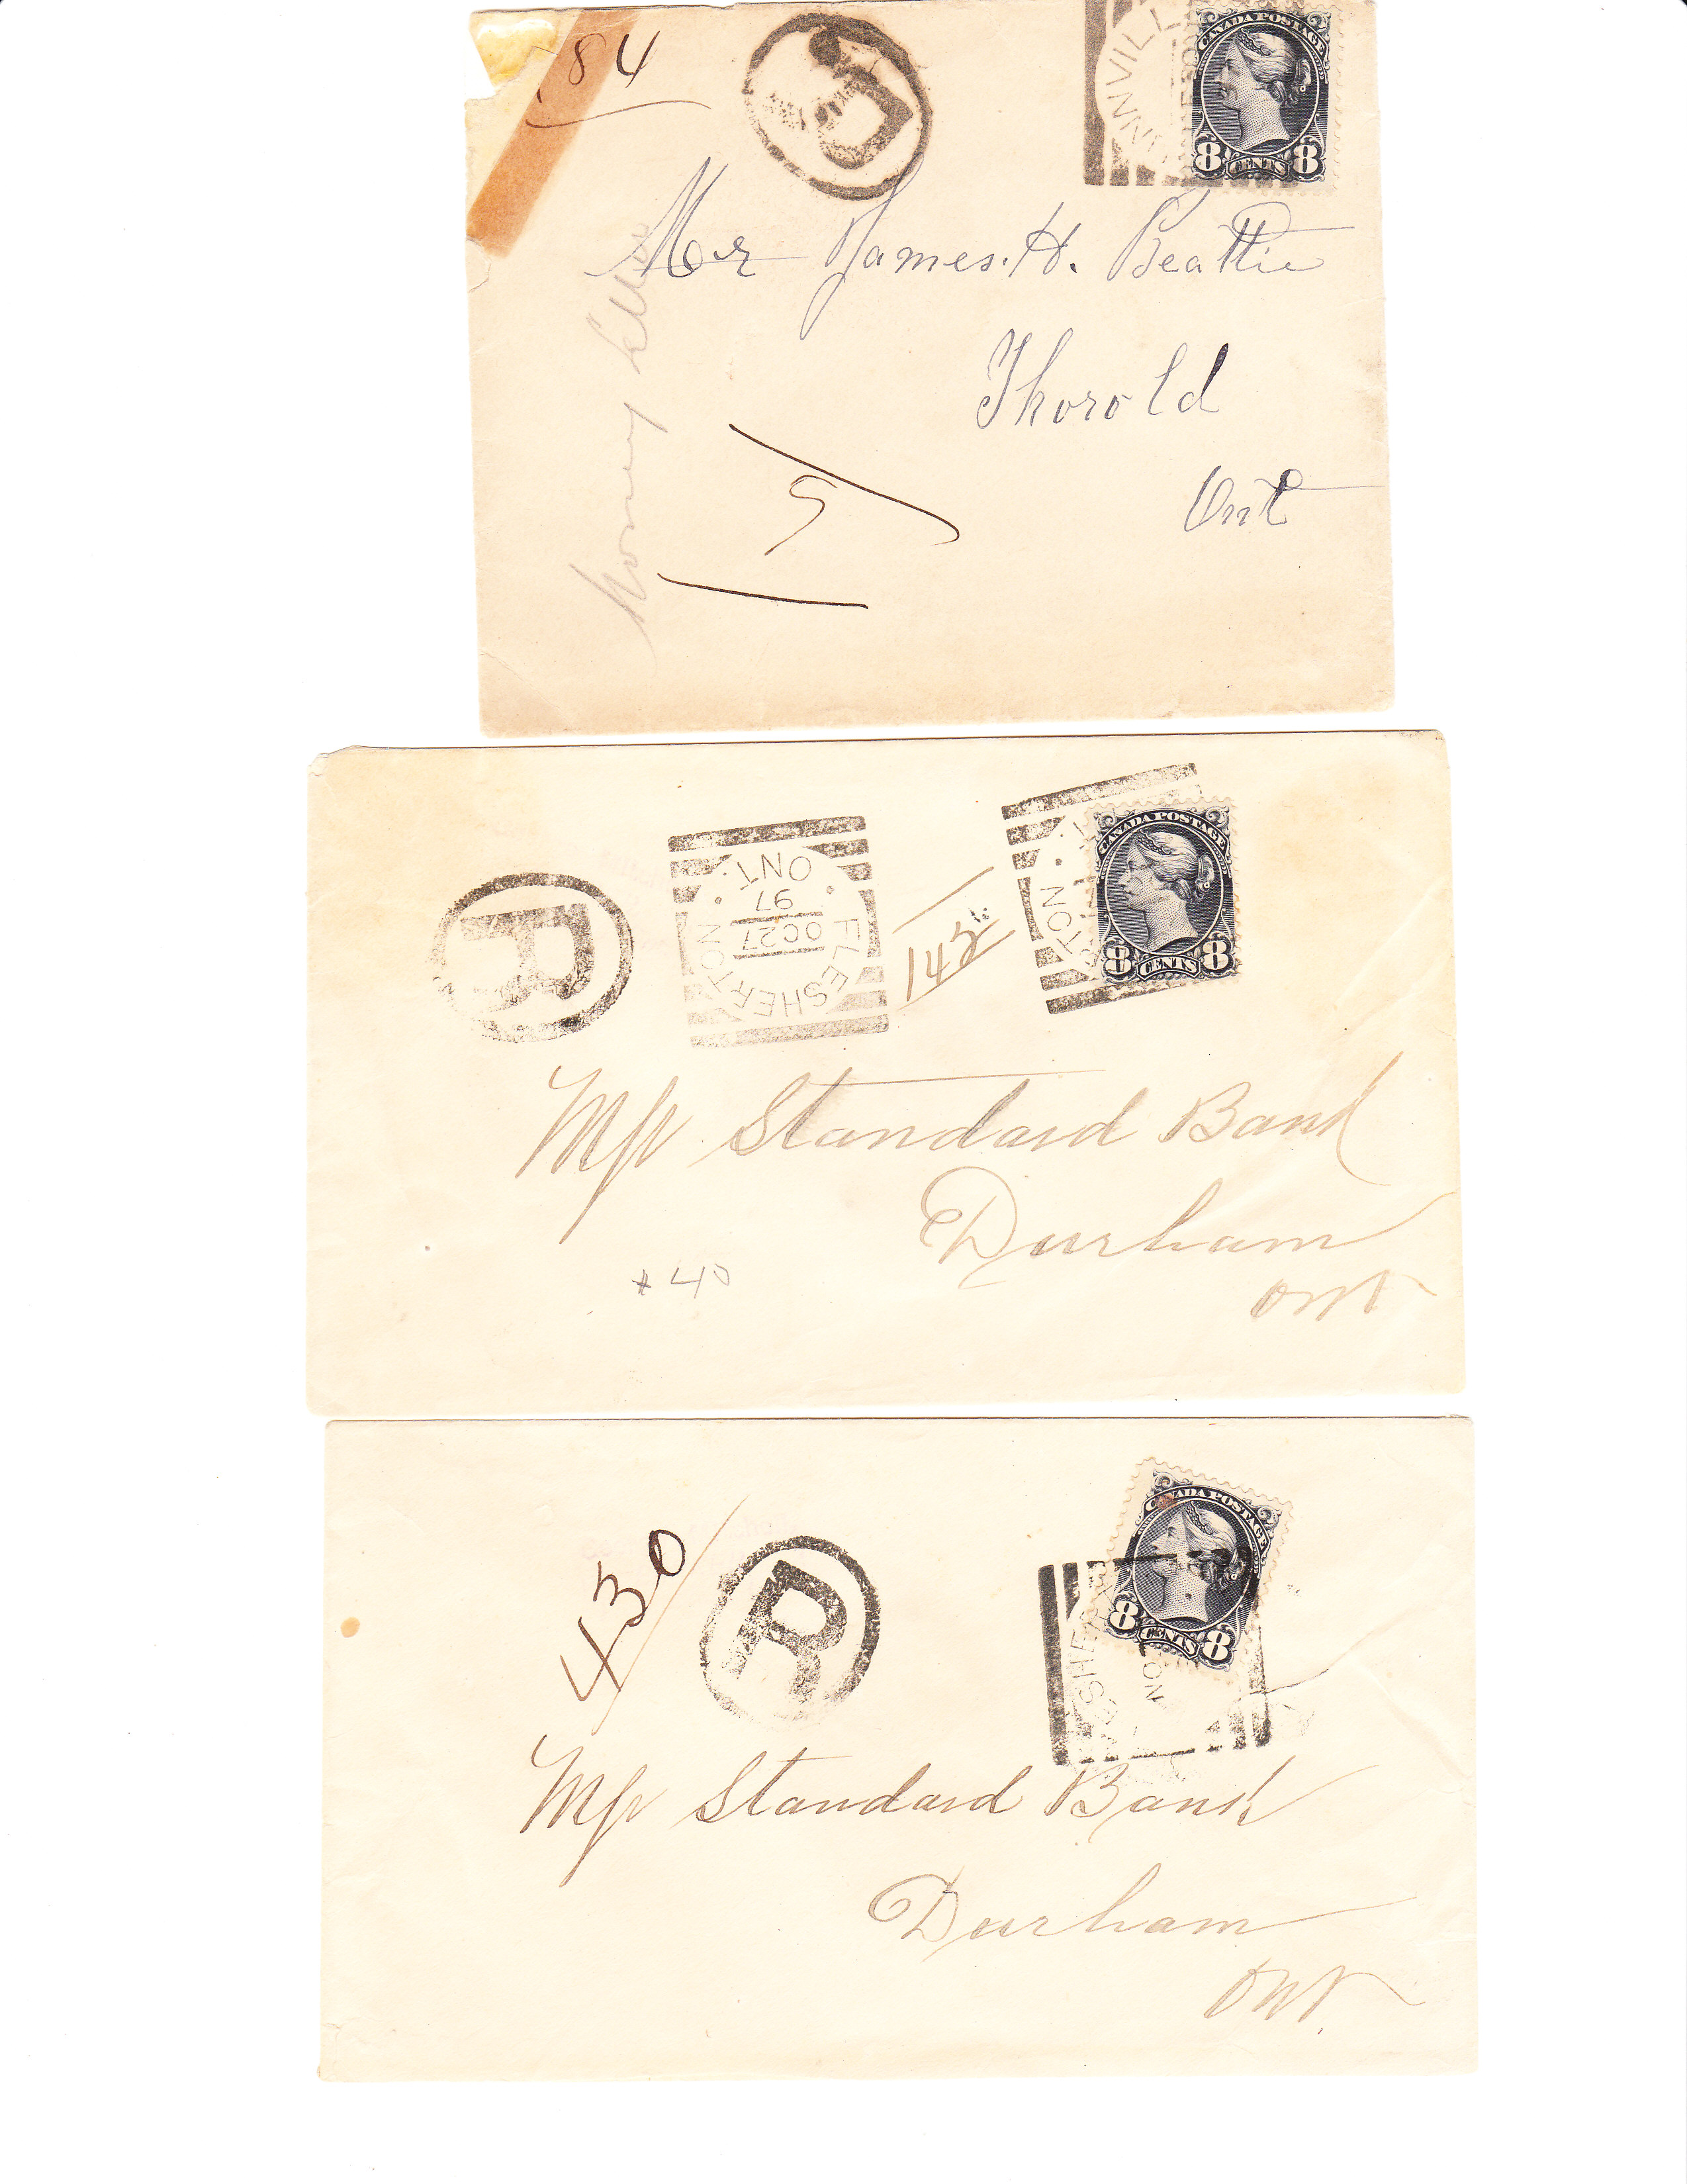 84
R
NNVILL
CANADA POSTAGE
8 CENTS 8
Mr James. H. Beattie
Thorold
Ont
Money letter
5
R
FLESHERTON
OC 27
97
ONT.
142
RTON
CANADA POSTAGE
8 CENTS 8
M/r Standard Bank
Durham
Ont
40
430
R
CANADA POSTAGE
8 CENTS 8
ESHER
M/r Standard Bank
Durham
Ont.